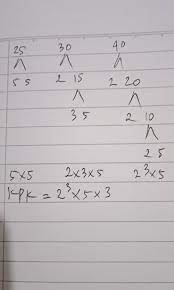 25 30 40
5 5 2 15 2 20
3 5 2 10
2 5
5×5 2×3×5 2³×5
KPK = 2³×5×3